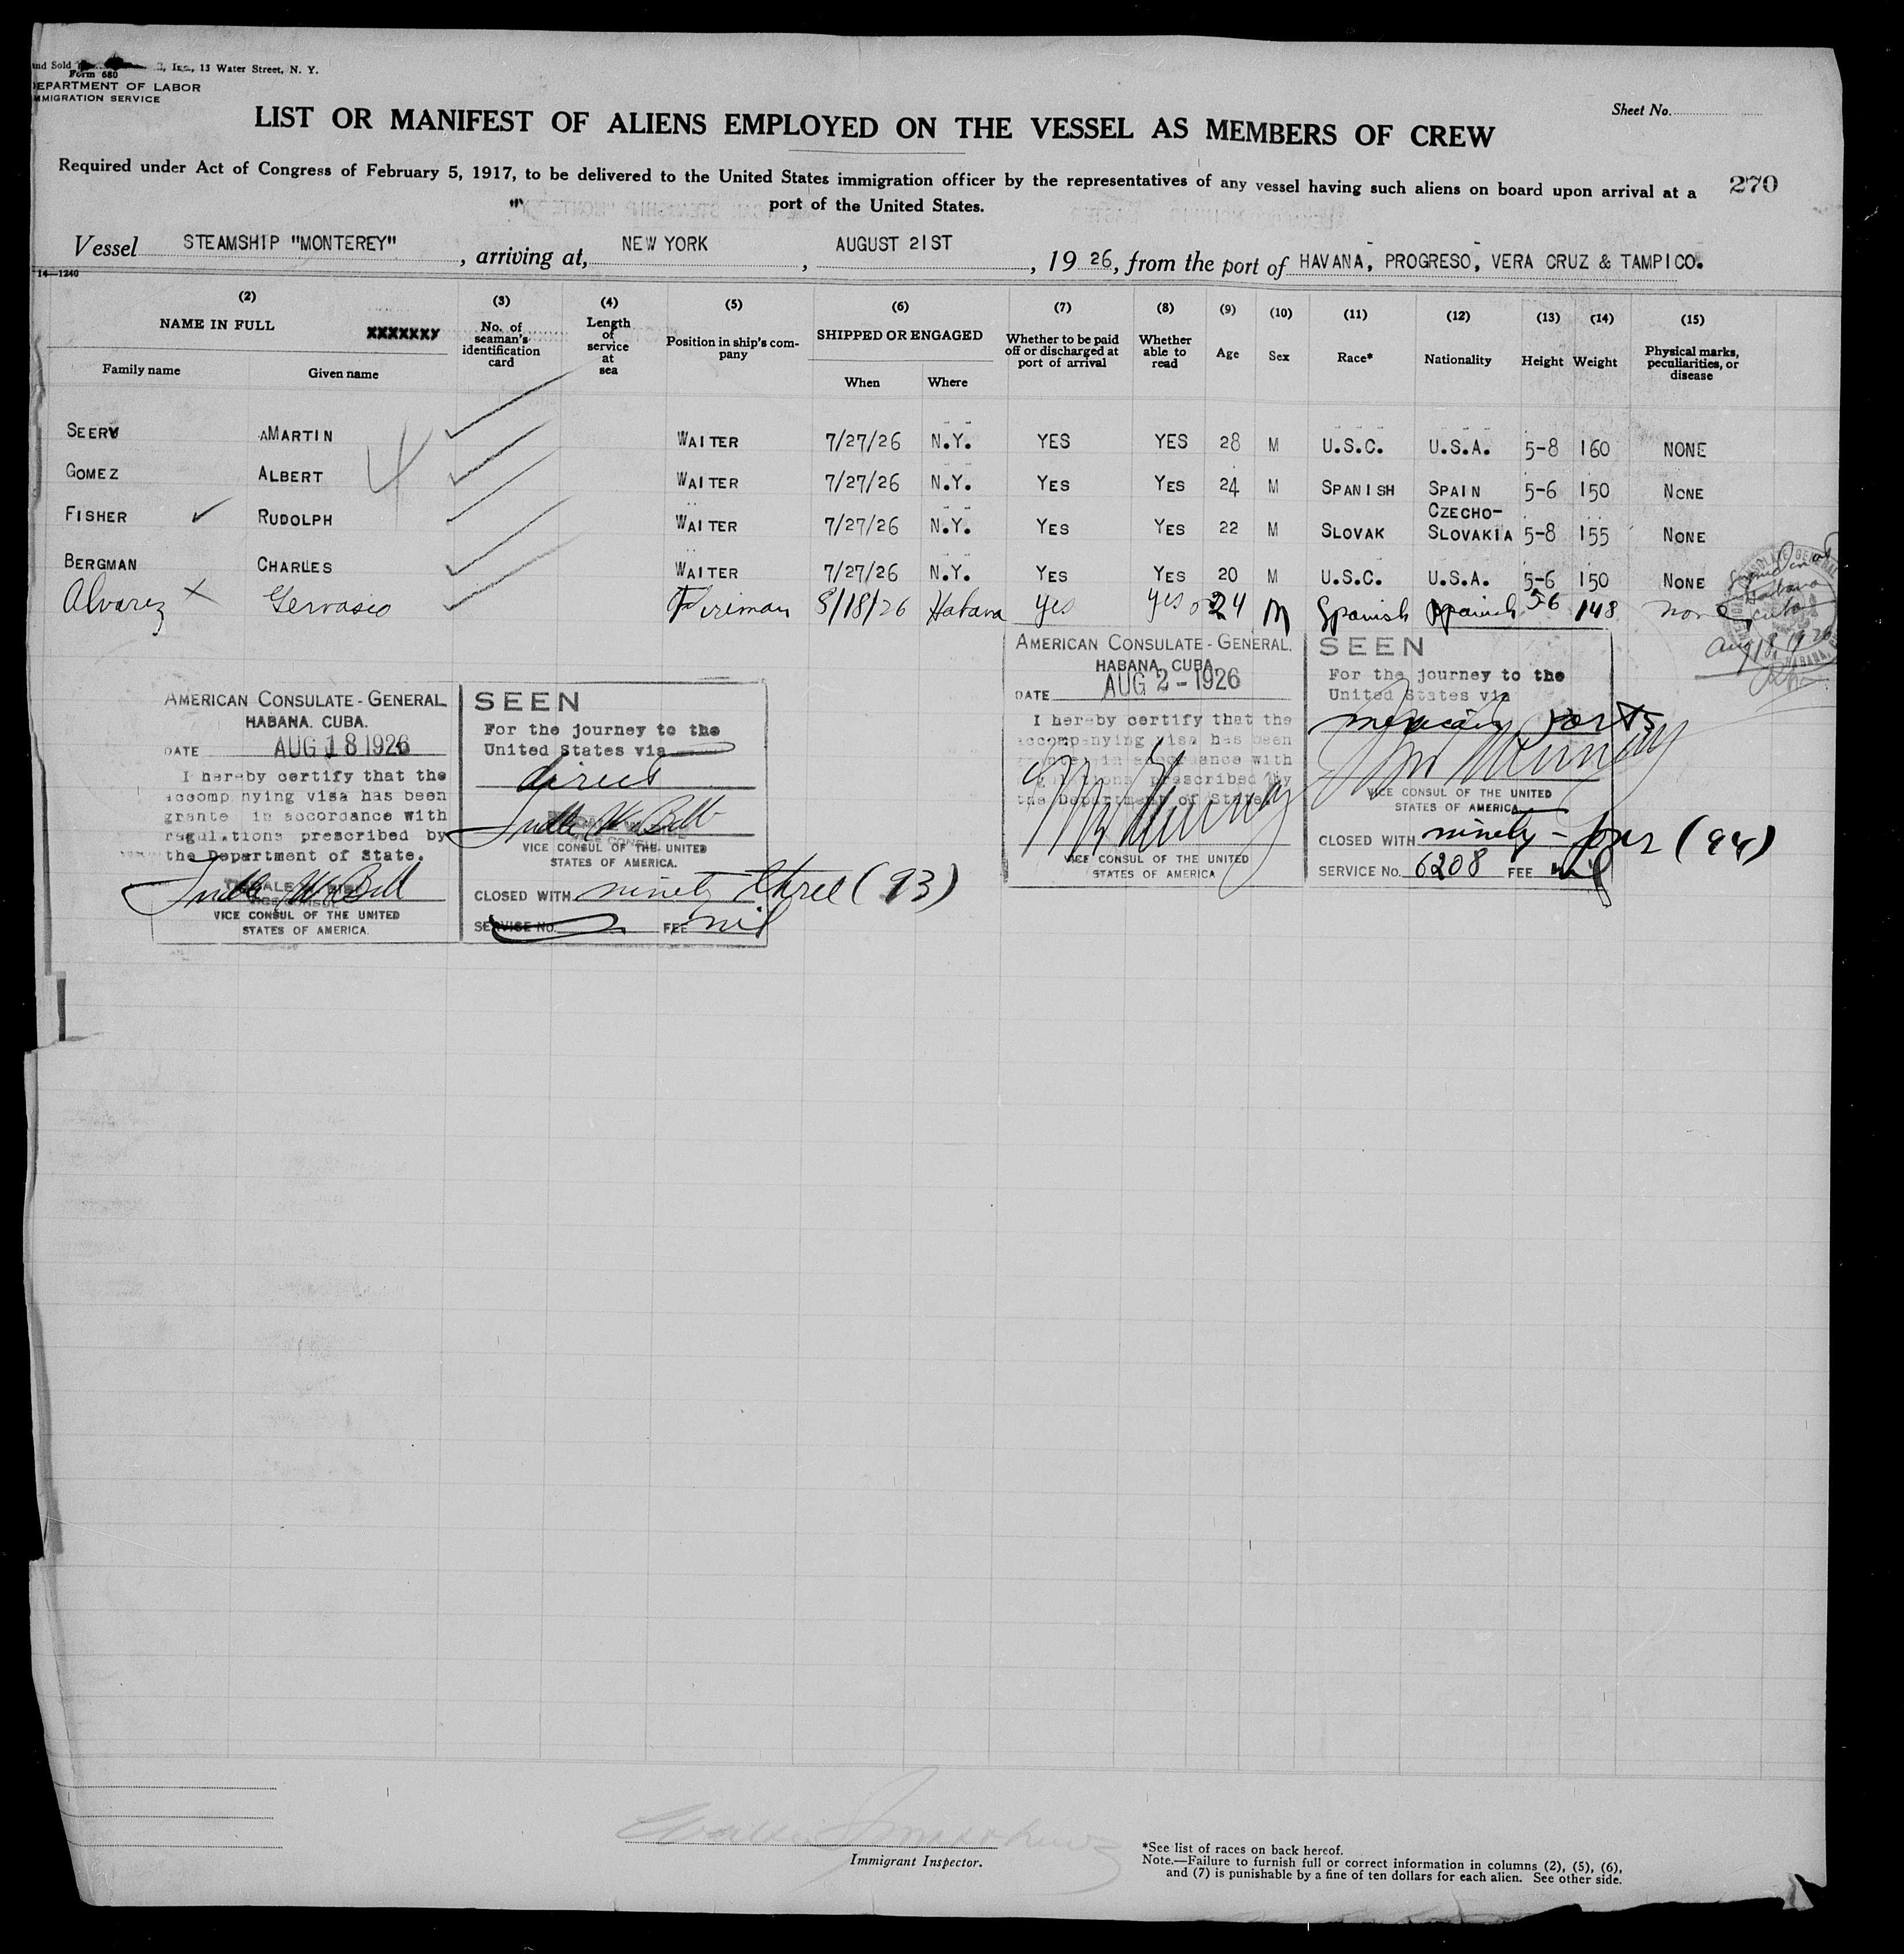 and Sold Inc., 13 Water Street, N. Y.
Form 680
DEPARTMENT OF LABOR
IMMIGRATION SERVICE
Sheet No.
LIST OR MANIFEST OF ALIENS EMPLOYED ON THE VESSEL AS MEMBERS OF CREW
Required under Act of Congress of February 5, 1917, to be delivered to the United States immigration officer by the representatives of any vessel having such aliens on board upon arrival at a
port of the United States.
270
Vessel STEAMSHIP "MONTEREY", arriving at, NEW YORK, AUGUST 21ST, 19 26, from the port of HAVANA, PROGRESO, VERA CRUZ & TAMPICO.
14—1240
(2) (3) (4) (5) (6) (7) (8) (9) (10) (11) (12) (13) (14) (15)
NAME IN FULL XXXXXXX No. of seaman's identification card Length of service at sea Position in ship's company SHIPPED OR ENGAGED Whether to be paid off or discharged at port of arrival Whether able to read Age Sex Race* Nationality Height Weight Physical marks, peculiarities, or disease
Family name Given name When Where
SEERY MARTIN WAITER 7/27/26 N.Y. YES YES 28 M U.S.C. U.S.A. 5-8 160 NONE
GOMEZ ALBERT WAITER 7/27/26 N.Y. YES YES 24 M SPANISH SPAIN 5-6 150 NONE
FISHER RUDOLPH WAITER 7/27/26 N.Y. YES YES 22 M SLOVAK CZECHO-SLOVAKIA 5-8 155 NONE
BERGMAN CHARLES WAITER 7/27/26 N.Y. YES YES 20 M U.S.C. U.S.A. 5-6 150 NONE
Alvarez Gervasio Fireman 8/18/26 Habana yes yes 24 M Spanish Spanish 5-6 148 none
Signed on at
Habana
Cuba
Aug 18, 1926
AMERICAN CONSULATE-GENERAL
HABANA, CUBA.
DATE AUG 18 1926
I hereby certify that the
accompanying visa has been
granted in accordance with
regulations prescribed by
the Department of State.
VICE CONSUL OF THE UNITED
STATES OF AMERICA.
SEEN
For the journey to the
United States via
direct
VICE CONSUL OF THE UNITED
STATES OF AMERICA.
CLOSED WITH ninety three (93)
SERVICE No. FEE nil
AMERICAN CONSULATE-GENERAL.
HABANA, CUBA
DATE AUG 2-1926
I hereby certify that the
accompanying visa has been
granted in accordance with
regulations prescribed by
the Department of State
VICE CONSUL OF THE UNITED
STATES OF AMERICA
SEEN
For the journey to the
United States via
mexican ports
VICE CONSUL OF THE UNITED
STATES OF AMERICA
CLOSED WITH ninety-four (94)
SERVICE No. 6208 FEE nil
Immigrant Inspector.
*See list of races on back hereof.
Note.—Failure to furnish full or correct information in columns (2), (5), (6),
and (7) is punishable by a fine of ten dollars for each alien. See other side.